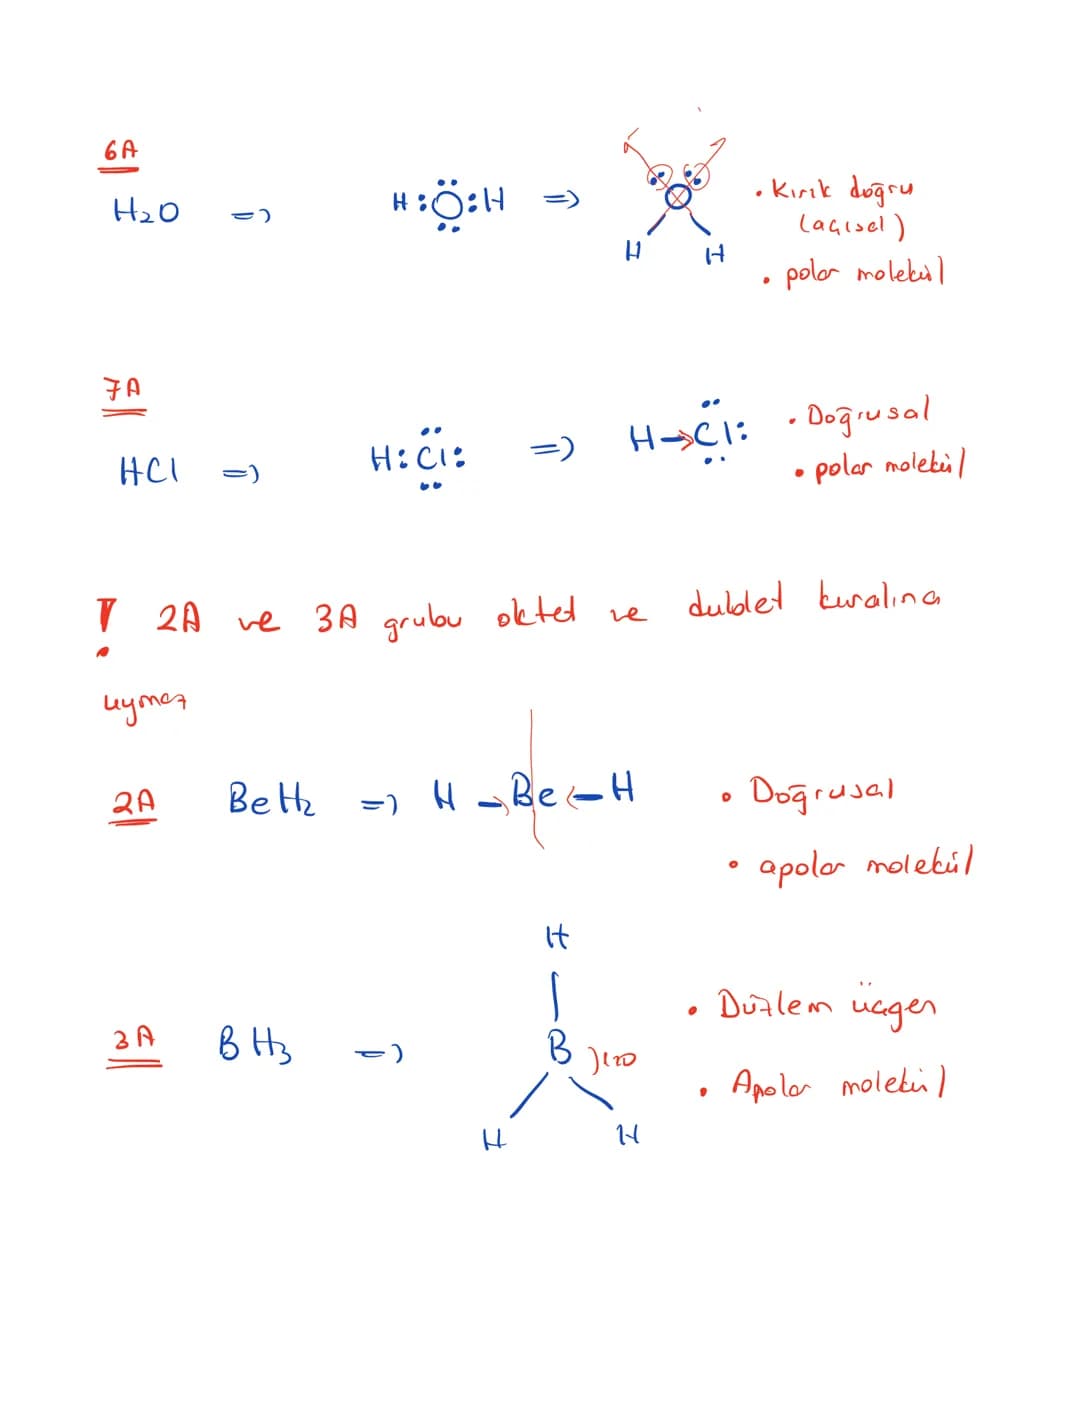 6A
H₂O => H:Ö:H => • Kırık doğru
(açısel)
H H
• polar molekül
7A
HCl => H:Cl: => H→Cl: • Doğrusal
• polar molekül
! 2A ve 3A grubu oktet ve dublet kuralına
uymaz
2A BeH₂ => H→Be←H • Doğrusal
• apolar molekül
H
3A BH₃ => B )120 • Düzlem üçgen
• Apolar molekül
H H